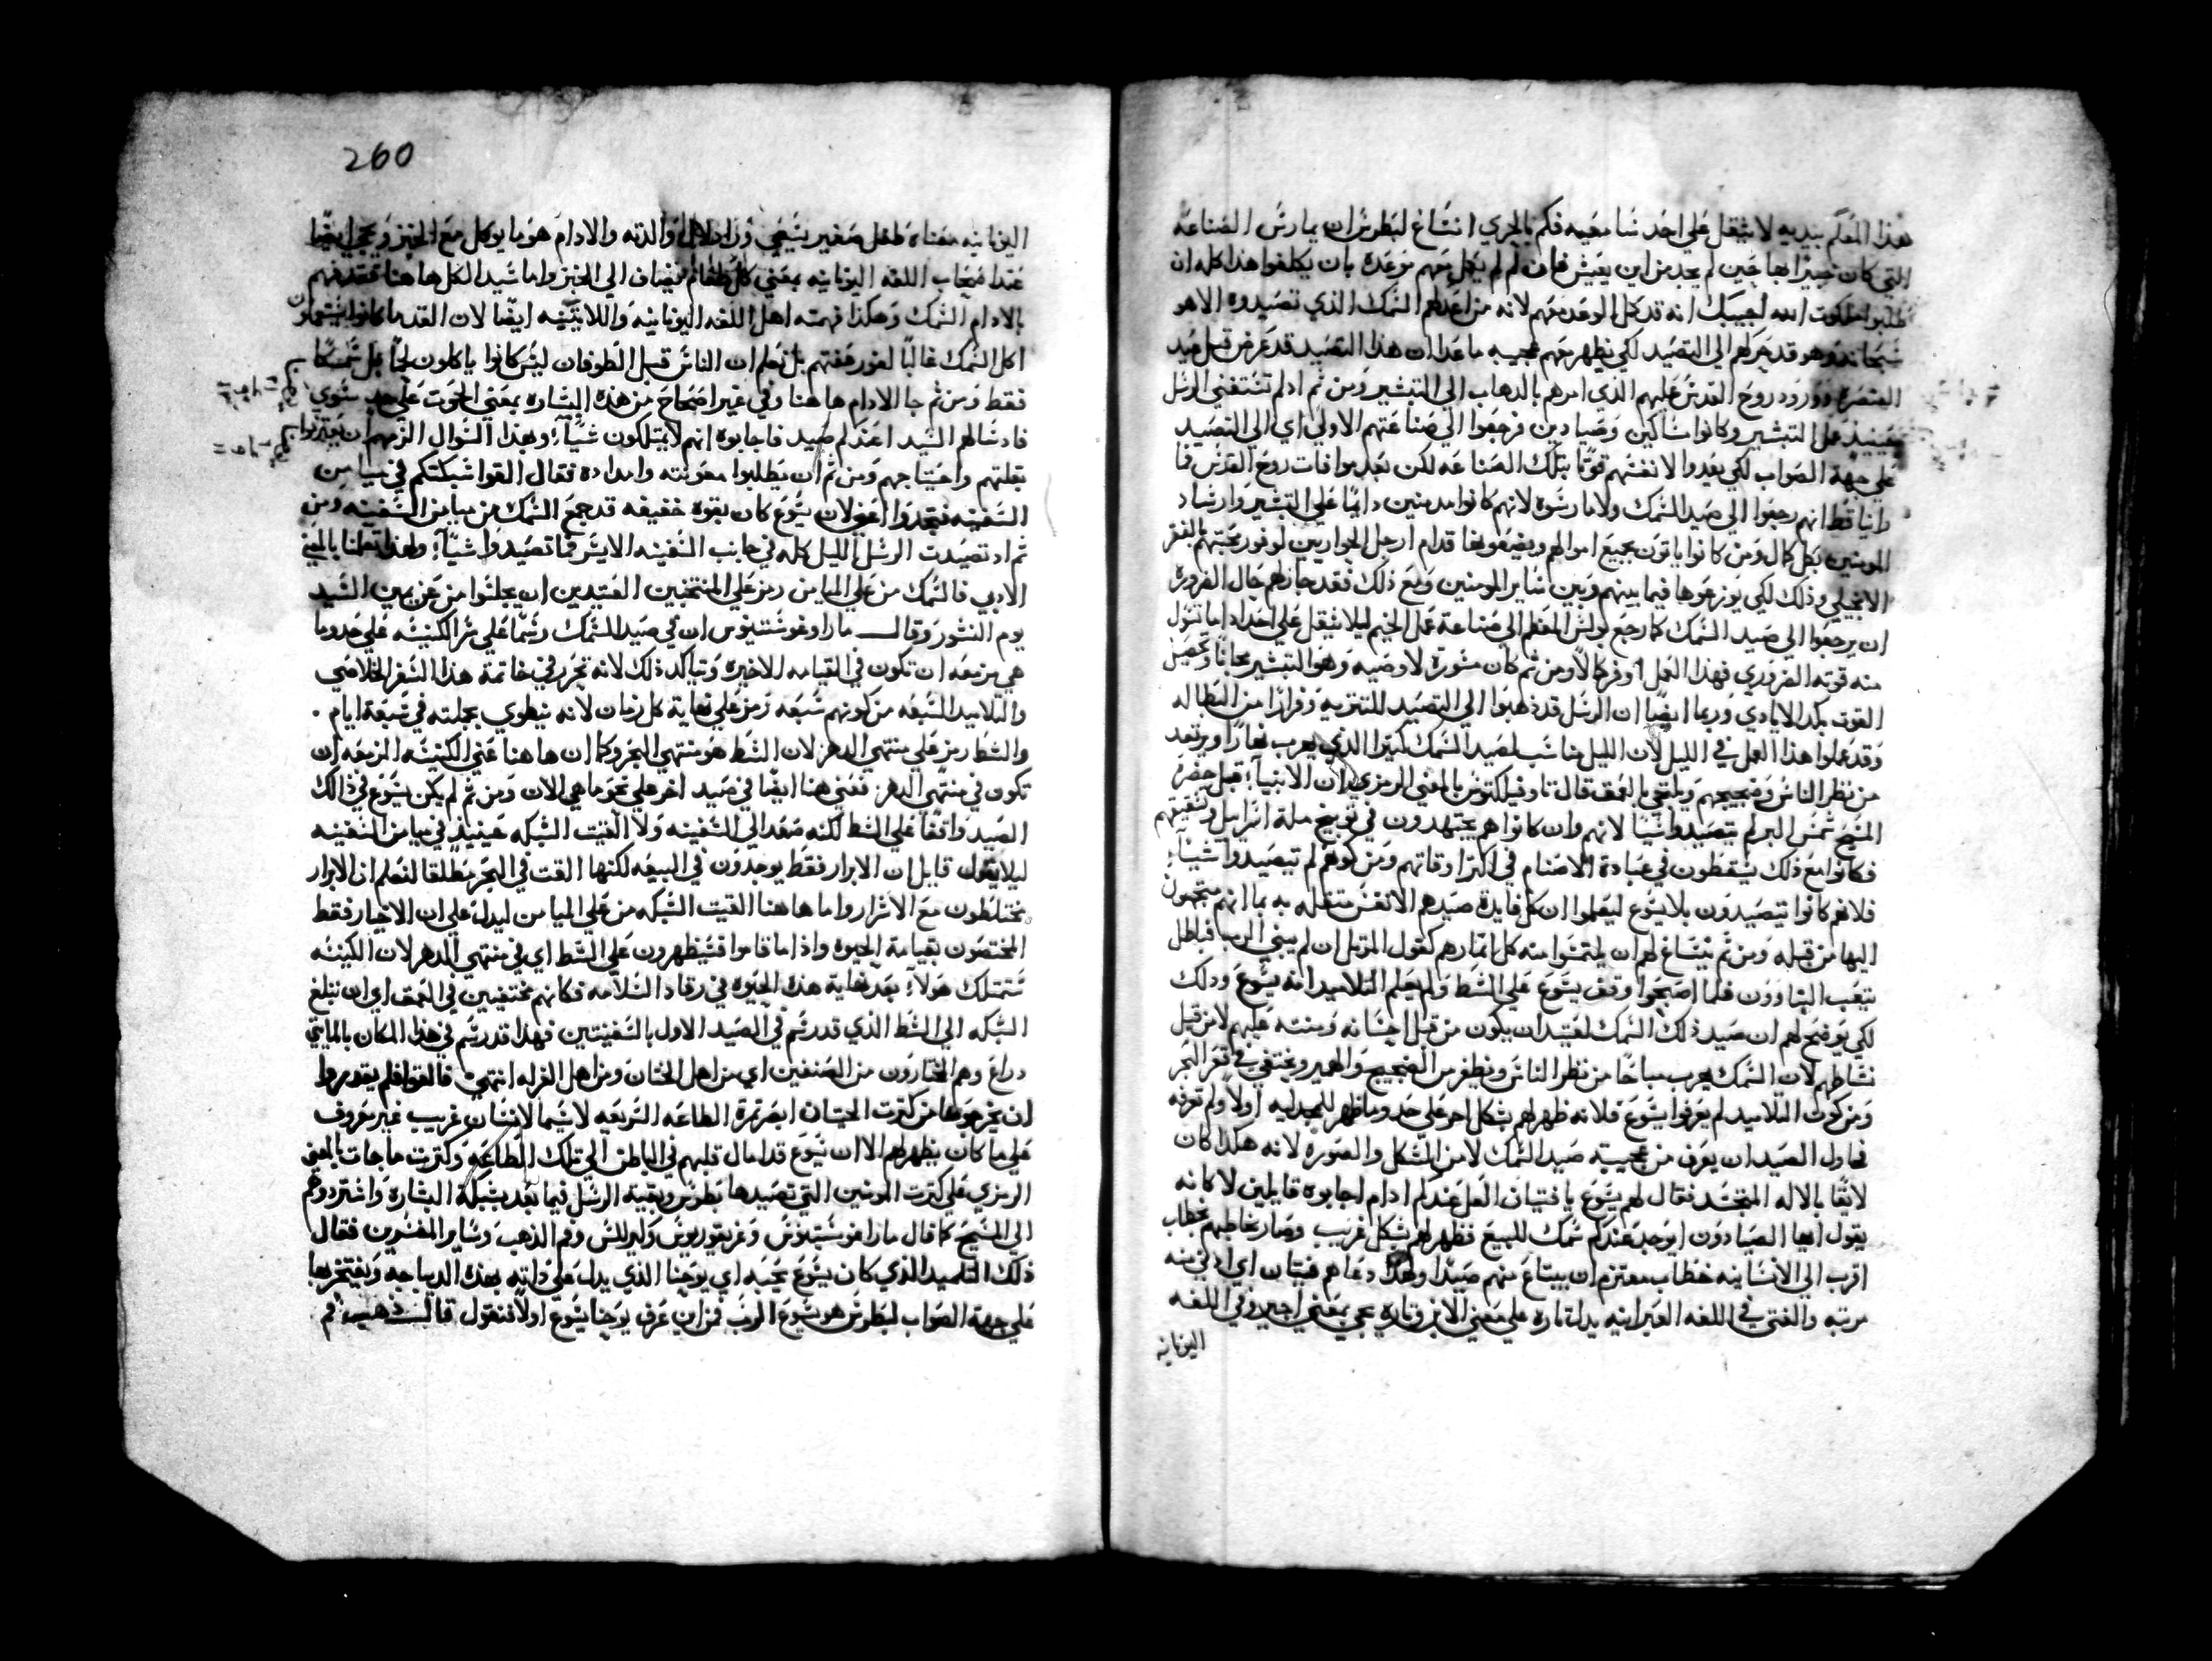 هذا المعلم بيديه لا يثقل علي احد سامعيه فكم بالحري انساغ لبطرس ان يمارس الصناعه
التي كان خبيرًا بها حين لم يجد من اين يعيش فان لم يكمل معهم موعده بان يكلفوا هذا كله ان
طلبوا ملكوت الله اجيبك انه قد كمل الوعد معهم لانه من اعد لهم السمك الذي تصيدوه الا هو
سبحانه وهو قد حركهم الي التصيد لكي يظهر معهم عجيبه ما عدا ان هذا التصيد قد عرض قبل عيد
العنصره وورود روح القدس عليهم الذي امرهم بالدهاب الي التبشير ومن ثم اد لم تستغني الرسل
حينيذ علي التبشير وكانوا مساكين وصيادين فرجعوا الي صناعتهم الاولي اي الي التصيد
علي جهة الصواب لكي يعدوا لانفسهم قوتًا بتلك الصناعه لكن بعد موافات روح القدس فما
راينا قط انهم رجعوا الي صيد السمك ولا مارسوه لانهم كانوا مدمنين دايمًا علي التبشير وارشاد
المومنين بكل كمال ومن كانوا ياتون بجميع اموالهم ويضعونها قدام ارجل الحواريين لوفور محبتهم بالفقر
الانجيلي وذلك لكي يوزعوها فيما بينهم وبين ساير المومنين ومع ذلك فقد جاز لهم حال الضرورة
ان يرجعوا الي صيد السمك كما رجع بولس المعظم الي صناعة عمل الخيم ليلا يثقل علي احد اد اما تسول
منه قوته الضروري فهدا العمل اوفر كمالًا ومن ثم كان مشورة لا وصيه وهو التبشير مجانًا وتحصيل
القوت بكد الايادي وربما ايضًا ان الرسل قد ذهبوا الي التصيد للتنزيه وفرارًا من البطاله
وقد عملوا هذا العمل في الليل لان الليل مناسب لصيد السمك كثيرًا الذي يهرب نهارًا ويرتعد
من نظر الناس وضجيجهم ويلتجي بالعمق قال تاوفيلكتوس بالمعني الرمزي ان الانبيآ قبل حضر
المسيح شمس البر لم يتصيدوا شيًا لانهم وان كانوا هم يجتهدون في توبيخ ملة اسراييل وتنقيتهم
فكانوا مع ذلك يسقطون في عبادة الاصنام في اكثر اوقاتهم ومن كونهم لم يتصيدوا شيئآ
فلانهم كانوا يتصيدون بلا يسوع ليعلموا ان كل فايدة صيدهم الانفس متعلقه به بما انهم متجهون
اليها من قبله ومن ثم ينساغ لهم ان يلتمسوا منه كل اثمارهم كقول المرتل ان لم يبني الرب فباطل
يتعب البناوون فلما اصبحوا وقف يسوع علي الشط ولم يعلم التلاميد انه يسوع ودلك
لكي يوضح لهم ان صيد ذلك السمك لعتيد ان يكون من قبل احسانه ومنته عليهم لا من قبل
نشاطهم لان السمك يهرب صباحًا من نظر الناس وينفر من الضجيج والهمير ويختفي في قعر البحر
ومن كون التلاميد لم يعرفوا يسوع فلانه ظهر لهم بشكل اخر علي حد وما ظهر للمجدليه اولًا ولم تعرفه
فحاول السيد ان يعرف من عجيبته صيد السمك لا من الشكل والصوره لانه هكذا كان
لايقًا بالاله المتجسد فقال لهم يسوع يا فتيان العل عندكم ادام اجابوه قايلين لا كانه
يقول ايها الصيادون ايوجد عندكم سمك للبيع فظهر لهم بشكل غريب وصار يخاطبهم بخطاب
اقرب الي الانسانيه خطاب معتزم ان يبتاع منهم صيدًا ولهدا دعاهم فتيان اي ادني منه
مرتبه والفتي في اللغه العبرانيه يدل تاره علي معني الابن وتاره يجي بمعني اجير وفي اللغه
اليونانيه
260
اليونانيه معناه طفل صغير ينعي وزاد دلال والدته والادام هو ما يوكل مع الخبز ويجي ايضًا
عند اصحاب اللغه اليونانيه بمعني كل طعام يضاف الي الخبز واما سيد الكل ها هنا فقد فهم
بالادام السمك وهكذا فهمته اهل اللغه اليونانيه واللاتينيه ايضًا لان القدما كانوا يستعملون
اكل السمك غالبًا لفور رغبتهم بل نعلم ان الناس قبل الطوفان ليس كانوا ياكلون لحمًا بل سمكًا
فقط ومن ثم جا الادام ها هنا وفي غير اصحاح من هذه البشاره بمعني الحوت علي حد سوي
فاد سالهم السيد اعندكم صيد فاجابوه انهم لا يمتلكون شيآ وبهذا السوال الزمهم ان يعترفوا
بقلتهم واحتياجهم ومن ثم ان يطلبوا معونته وامداده فقال القوا شبكتكم في ميامن
السفينه فتجدوا اعني لان يسوع كان بقوه خفيه قد جمع السمك من ميامن السفينه ومن
ثم اد تصيدت الرسل الليل كله في جانب السفينه الايسر فما تصيدوا شيآ ولهذا تعلمنا بالمعني
الادبي فالسمك من علي الميامن رمز علي المنتخبين العتيدين ان يجلسوا من عن يمين السيد
يوم النشور وقال مار اوغوسطينوس ان في صيد السمك رسمًا علي سر الكنيسه علي حد وما
هي مزمعه ان تكون في القيامه الاخيره ويتاكد ذلك لانه تحرر في خاتمة هذا السفر الخلاصي
والتلاميد السبعه من كونهم سبعه رمز علي نهاية كل زمان لانه ينطوي بجملته في سبعة ايام .
والشط رمز علي منتهي الدهر لان الشط هو منتهي البحر وكما ان ها هنا عني الكنيسه المزمعه ان
تكون في منتهي الدهر فعني هنا ايضًا في صيد اخر علي نحو ما هي الان ومن ثم لم يكن يسوع في ذالك
الصيد واقفًا علي الشط لكنه صعد الي السفينه ولا القيت الشبكه حينيذ في ميامن السفينه
ليلا يقول قايل ان الابرار فقط يوجدون في البيعه لكنها القت في البحر مطلقا لنعلم ان الابرار
مختلطون مع الاشرار واما ها هنا القيت الشبكه من علي الميامن ليدل علي ان الاخيار فقط
المختصون بقيامة الحيوه واذا ما قاموا فسيظهرون علي الشط اي في منتهي الدهر لان الكنيسه
تستملك هولآ بعد نهاية هده الحيوه في رقاد السلامه فكانهم مختفيين في العمق اي ان تبلغ
الشبكه الي الشط الذي قد رسم في الصيد الاول بالسفينتين فهذا قد رسم في هذا المكان بالمايتي
دراع وهم المختارون من الصنفين اي من اهل الختان ومن اهل الغرله انتهي فالقوا فلم يقدروا
ان يخرجوها من كثرت الحيتان ابصر ثمرة الطاعه السريعه لا سيما لانسان غريب غير معروف
علي ما كان يظهر لهم الا ان يسوع قد امال قلبهم في الباطن الي تلك الطاعه وكثرت ما جات بالمعني
الرمزي علي كثرت المومنين التي تصيدها بطرس وبقية الرسل فيما بعد بشبكة البشارة واستردوهم
الي المسيح كما قال مار اغوسطينوس وغريغوريوس وكيرللس وفم الذهب وساير المفسرين فقال
ذلك التلميد الذي كان يسوع يحبه اي يوحنا الذي يدل علي ذاته بهذه الديباجه ويفتخر بها
علي جهة الصواب لبطرس هو يسوع الرب فمن اين عرف يوحنا يسوع اولًا فنقول قال ذهبي فم